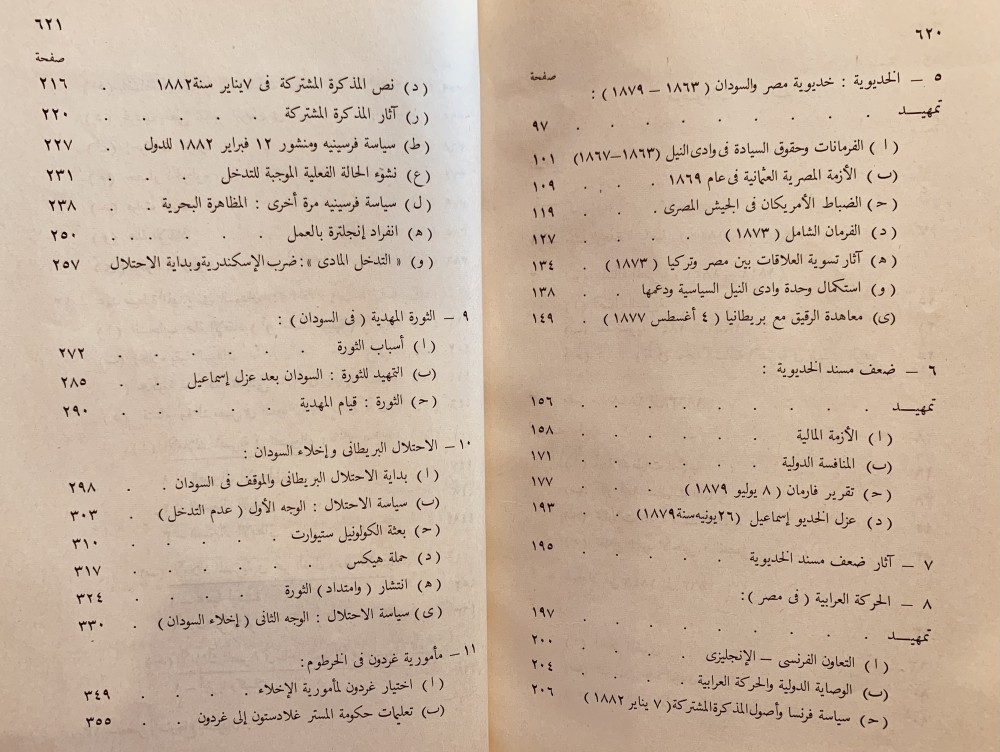 ٦٢٠
صفحة
٥ — الخديوية : خديوية مصر والسودان ( ١٨٦٣ — ١٨٧٩ ) :
تمهيــد . . . . . . . . . ٩٧
( ا ) الفرمانات وحقوق السيادة فى وادى النيل (١٨٦٣—١٨٦٧) ١٠١
(ب) الأزمة المصرية العثمانية فى عام ١٨٦٩ . . . ١٠٩
(ح) الضباط الأمريكان فى الجيش المصرى . . . . ١١٩
(د) الفرمان الشامل ( ١٨٧٣ ) . . . . . ١٢٧
(ه) آثار تسوية العلاقات بين مصر وتركيا ( ١٨٧٣ ) . ١٣٤
(و) استكمال وحدة وادى النيل السياسية ودعمها . . ١٣٨
(ى) معاهدة الرقيق مع بريطانيا ( ٤ أغسطس ١٨٧٧ ) . ١٤٩
٦ — ضعف مسند الخديوية :
تمهيــد . . . . . . . . . ١٥٦
( ا ) الأزمة المالية . . . . . . ١٥٨
(ب) المنافسة الدولية . . . . . . ١٧١
(ح) تقرير فارمان ( ٨ يوليو ١٨٧٩ ) . . . . ١٧٧
(د) عزل الخديو إسماعيل (٢٦ يونيه سنة ١٨٧٩) . . ١٩٣
٧ — آثار ضعف مسند الخديوية . . . . . ١٩٥
٨ — الحركة العرابية ( فى مصر ) :
تمهيــد . . . . . . . . . ١٩٧
( ا ) التعاون الفرنسى — الإنجليزى . . . . ٢٠٠
(ب) الوصاية الدولية والحركة العرابية . . . . ٢٠٤
(ح) سياسة فرنسا وأصول المذكرة المشتركة ( ٧ يناير ١٨٨٢ ) ٢٠٦
٦٢١
صفحة
(د) نص المذكرة المشتركة فى ٧ يناير سنة ١٨٨٢ . ٢١٦
(ر) آثار المذكرة المشتركة . . . . . ٢٢٠
(ط) سياسة فرسينيه ومنشور ١٢ فبراير ١٨٨٢ للدول . ٢٢٧
(ع) نشوء الحالة الفعلية الموجبة للتدخل . . . ٢٣١
(ل) سياسة فرسينيه مرة أخرى : المظاهرة البحرية . . ٢٣٨
(ه) انفراد إنجلترة بالعمل . . . . . . ٢٥٠
(و) « التدخل المادى » : ضرب الإسكندرية وبداية الاحتلال ٢٥٧
٩ — الثورة المهدية ( فى السودان ) :
( ا ) أسباب الثورة . . . . . . ٢٧٢
(ب) التمهيد للثورة : السودان بعد عزل إسماعيل . . ٢٨٥
(ح) الثورة : قيام المهدية . . . . . ٢٩٠
١٠ — الاحتلال البريطانى وإخلاء السودان :
( ا ) بداية الاحتلال البريطانى والموقف فى السودان . . ٢٩٨
(ب) سياسة الاحتلال : الوجه الأول ( عدم التدخل ) . ٣٠٣
(ح) بعثة الكولونيل ستيوارت . . . . . ٣١٠
(د) حملة هيكس . . . . . . ٣١٧
(ه) انتشار ( وامتداد ) الثورة . . . . ٣٢٤
(ى) سياسة الاحتلال : الوجه الثانى ( إخلاء السودان ) . ٣٣٠
١١ — مأمورية غردون فى الخرطوم :
( ا ) اختيار غردون لمأمورية الإخلاء . . . . ٣٤٩
(ب) تعليمات حكومة المستر غلادستون إلى غردون . . ٣٥٥